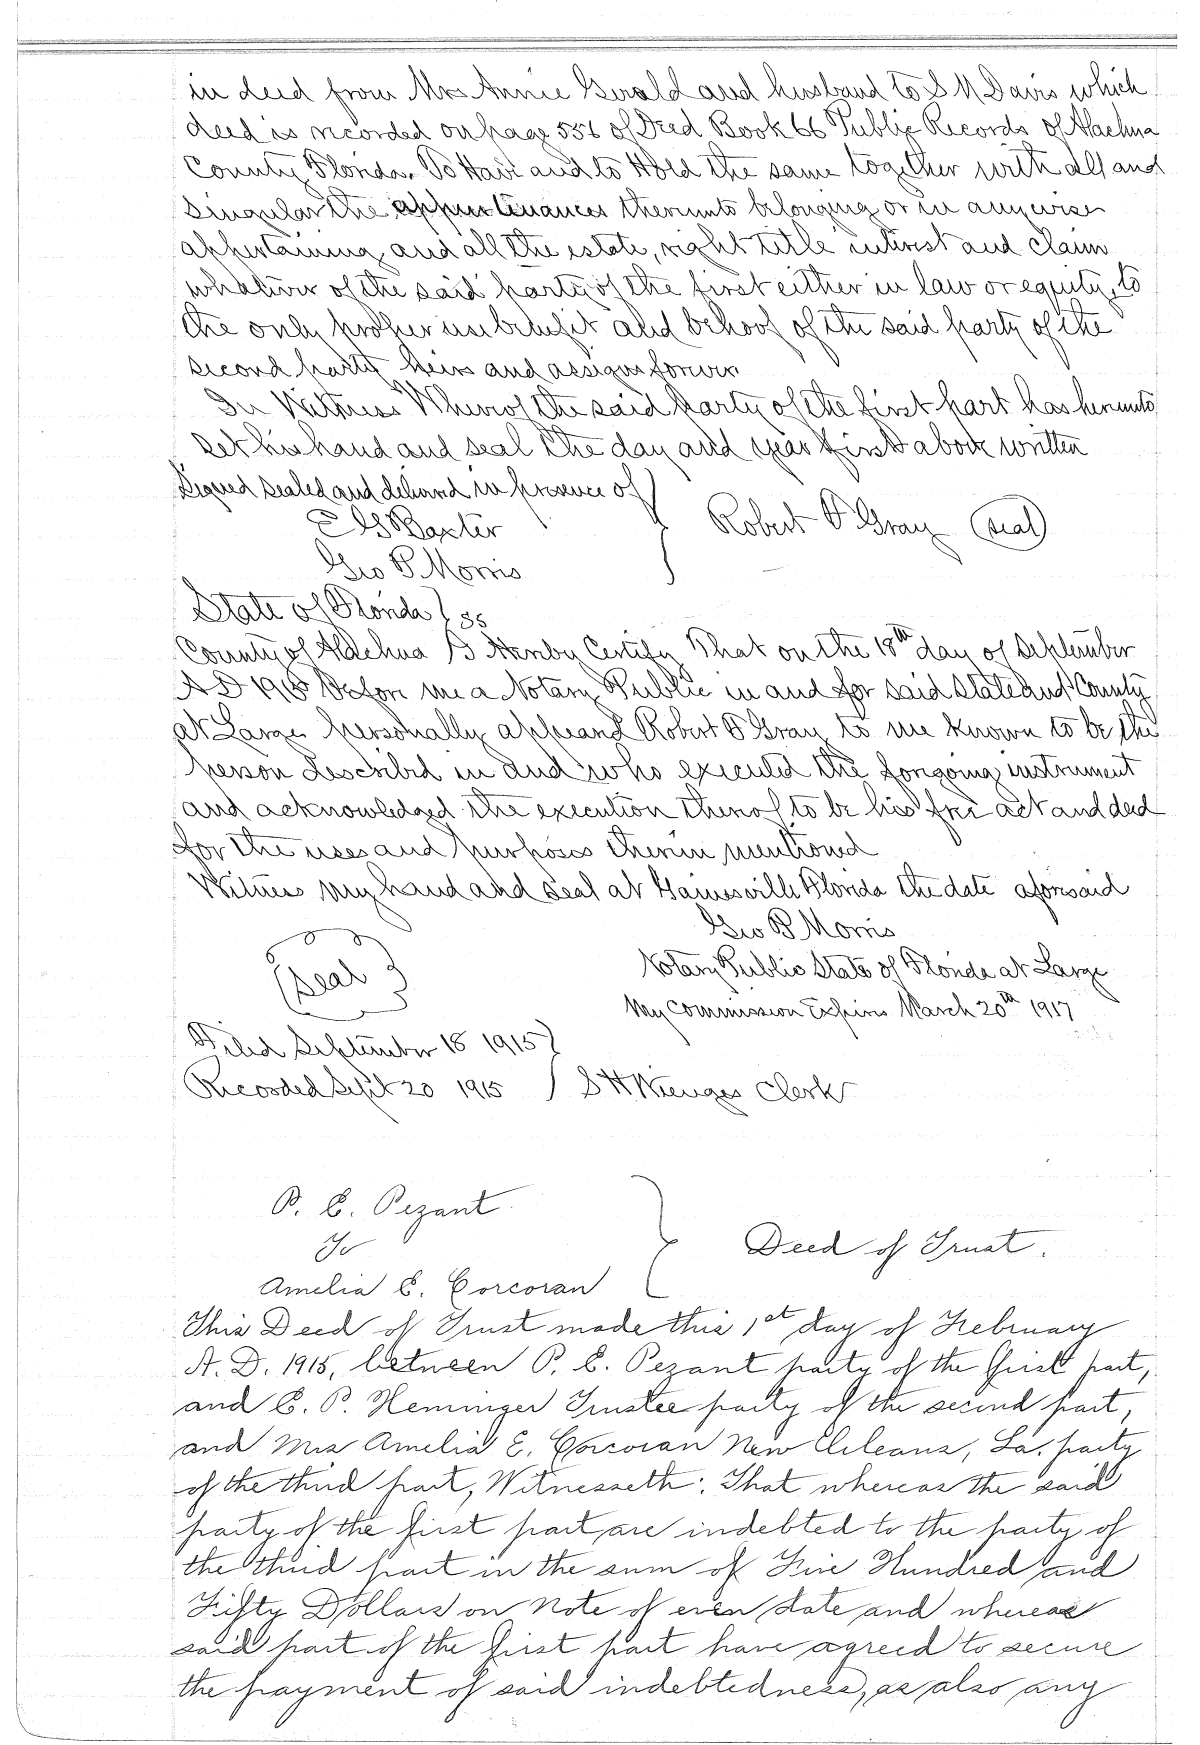 in deed from Mrs Annie Gerald and husband to S M Davis which
deed is recorded on page 556 of Deed Book 66 Public Records of Alachua
County Florida. To Have and to Hold the same together with all and
singular the appurtenances thereunto belonging or in anywise
appertaining and all the estate, right title interest and claim
whatever of the said party of the first either in law or equity, to
the only proper use benefit and behoof of the said party of the
second party heirs and assigns forever
In Witness Whereof the said party of the first part has hereunto
set his hand and seal the day and year first above written
Signed sealed and delivered in presence of
E G Baxter
Robert F Gray (seal)
Geo P Morris
State of Florida } ss
County of Alachua I Hereby Certify That on the 18th day of September
A D 1915 before me a Notary Public in and for said State and County
at Large personally appeared Robert F Gray to me known to be the
person described in and who executed the foregoing instrument
and acknowledged the execution thereof to be his free act and deed
for the uses and purposes therein mentioned
Witness my hand and seal at Gainesville Florida the date aforesaid
Geo P Morris
(seal)
Notary Public State of Florida at Large
My Commission Expires March 20th 1917
Filed September 18 1915
Recorded Sept 20 1915 } S H Wienges Clerk
P. E. Pezant
To
Deed of Trust.
Amelia E. Corcoran
This Deed of Trust made this 1st day of February
A. D. 1915, between P. E. Pezant party of the first part,
and C. P. Heminger Trustee party of the second part,
and Mrs Amelia E. Corcoran New Orleans, La. party
of the third part, Witnesseth: That whereas the said
party of the first part are indebted to the party of
the third part in the sum of Five Hundred and
Fifty Dollars on note of even date and whereas
said part of the first part have agreed to secure
the payment of said indebtedness, as also any